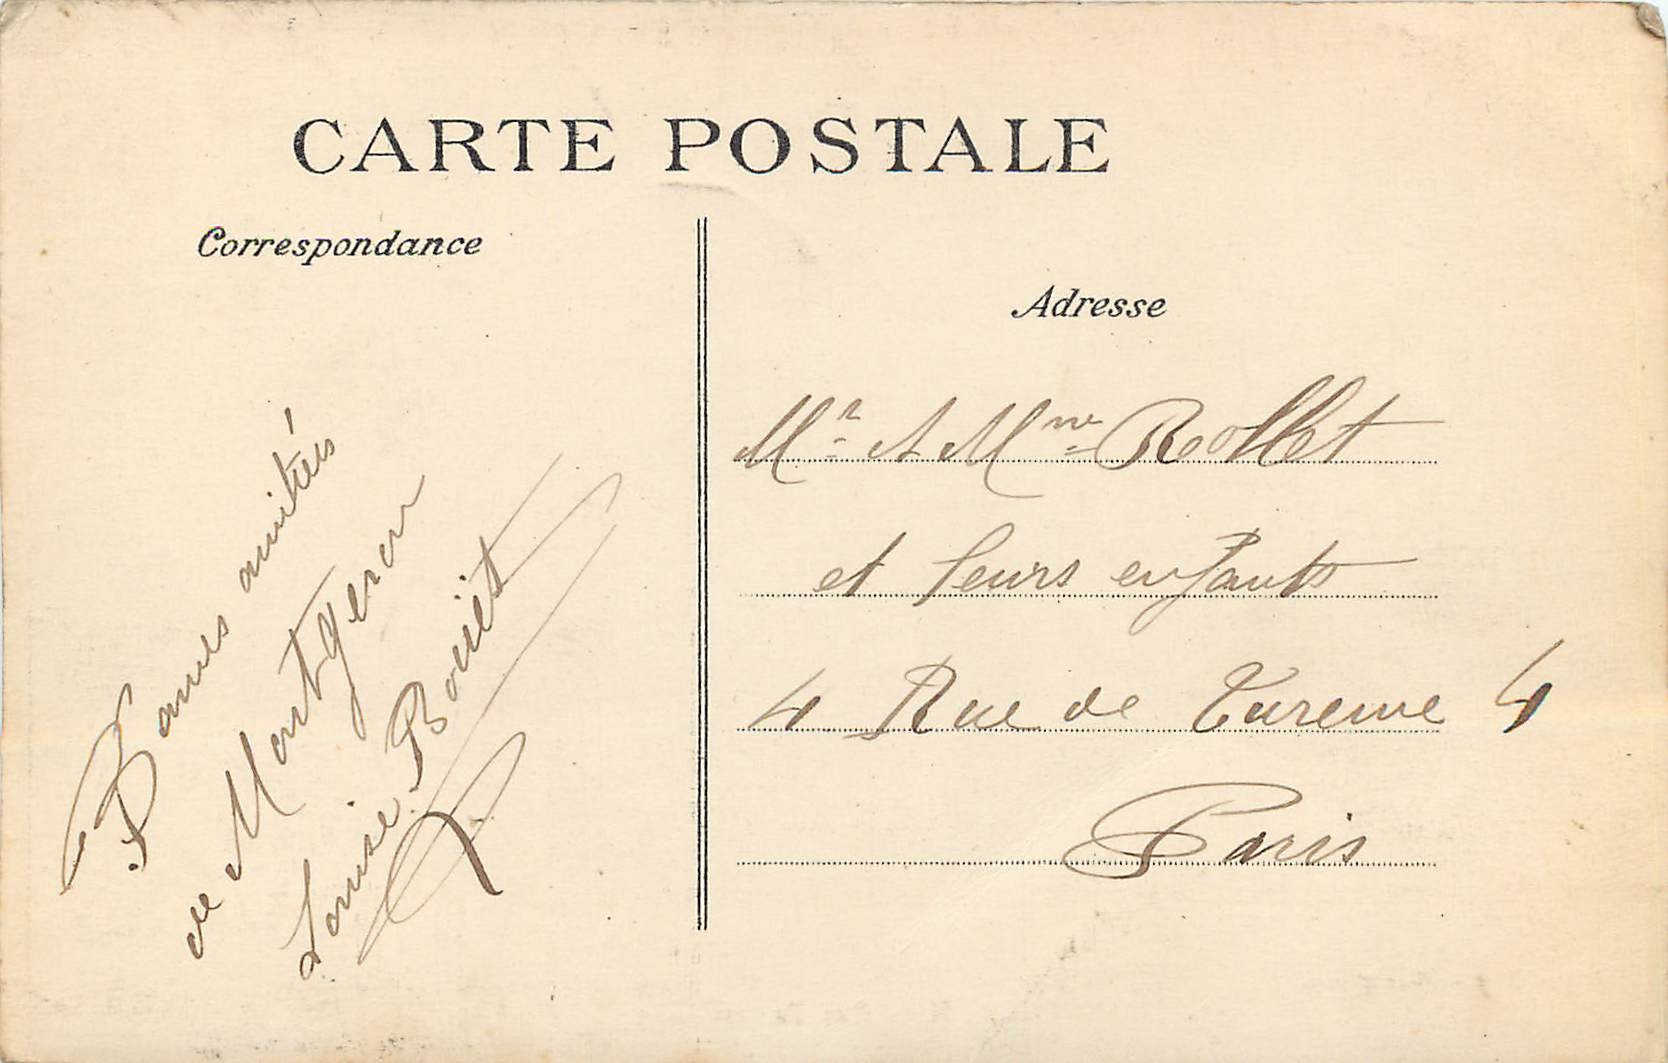 CARTE POSTALE
Correspondance
Bonnes amitiés
de Montgeron
Louise Bouët
Adresse
Mr et Mme Rollet
et leurs enfants
4 Rue de Turenne 4
Paris